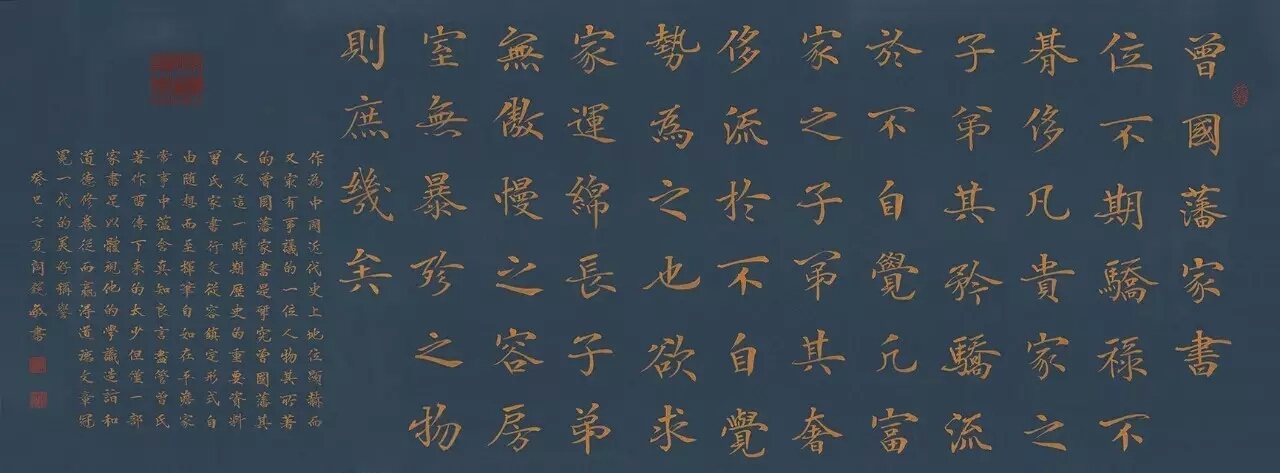 曾國藩家書
位不期驕祿不
朞侈凡貴家之
子弟其矜驕流
於不自覺凡富
家之子弟其奢
侈流於不自覺
勢為之也欲求
家運綿長子弟
無傲慢之容房
室無暴殄之物
則庶幾矣
作為中國近代史上地位顯赫而
又最有爭議的一位人物其所著
的曾國藩家書是研究曾國藩其
人及這一時期歷史的重要資料
曾氏家書行文從容鎮定形式自
由隨想而至揮筆自如在平淡家
常事中蘊含真知良言盡管曾氏
著作留傳下來的太少但僅一部
家書足以體現他的學識造詣和
道德修養從而贏得道德文章冠
冕一代的美好稱譽
癸巳之夏 書